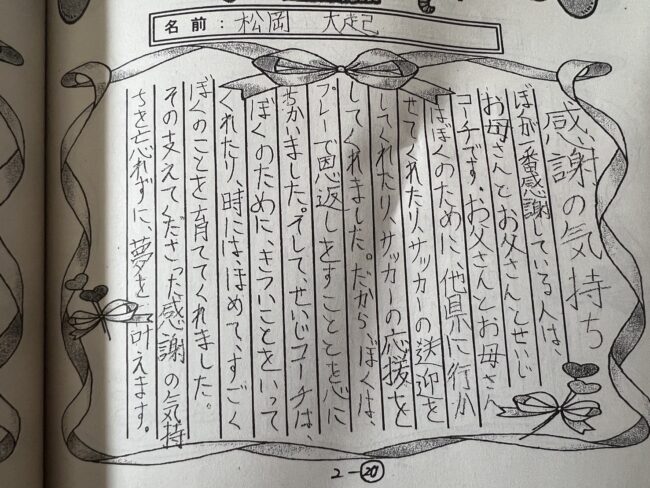 名前：松岡 大起
感謝の気持ち
ぼくが一番感謝している人は、
お母さんとお父さんとせいじ
コーチです。お父さんとお母さん
はぼくのために他県に行か
せてくれたり、サッカーの送迎を
してくれたり、サッカーの応援を
してくれました。だからぼくは、
プレーで恩返しをすることを心に
ちかいました。そして、せいじコーチは、
ぼくのために、きついことをいって
くれたり、時には、ほめて、すごく
ぼくのことを育ててくれました。
その支えてくださった感謝の気持
ちを忘れずに、夢を叶えます。
2-20